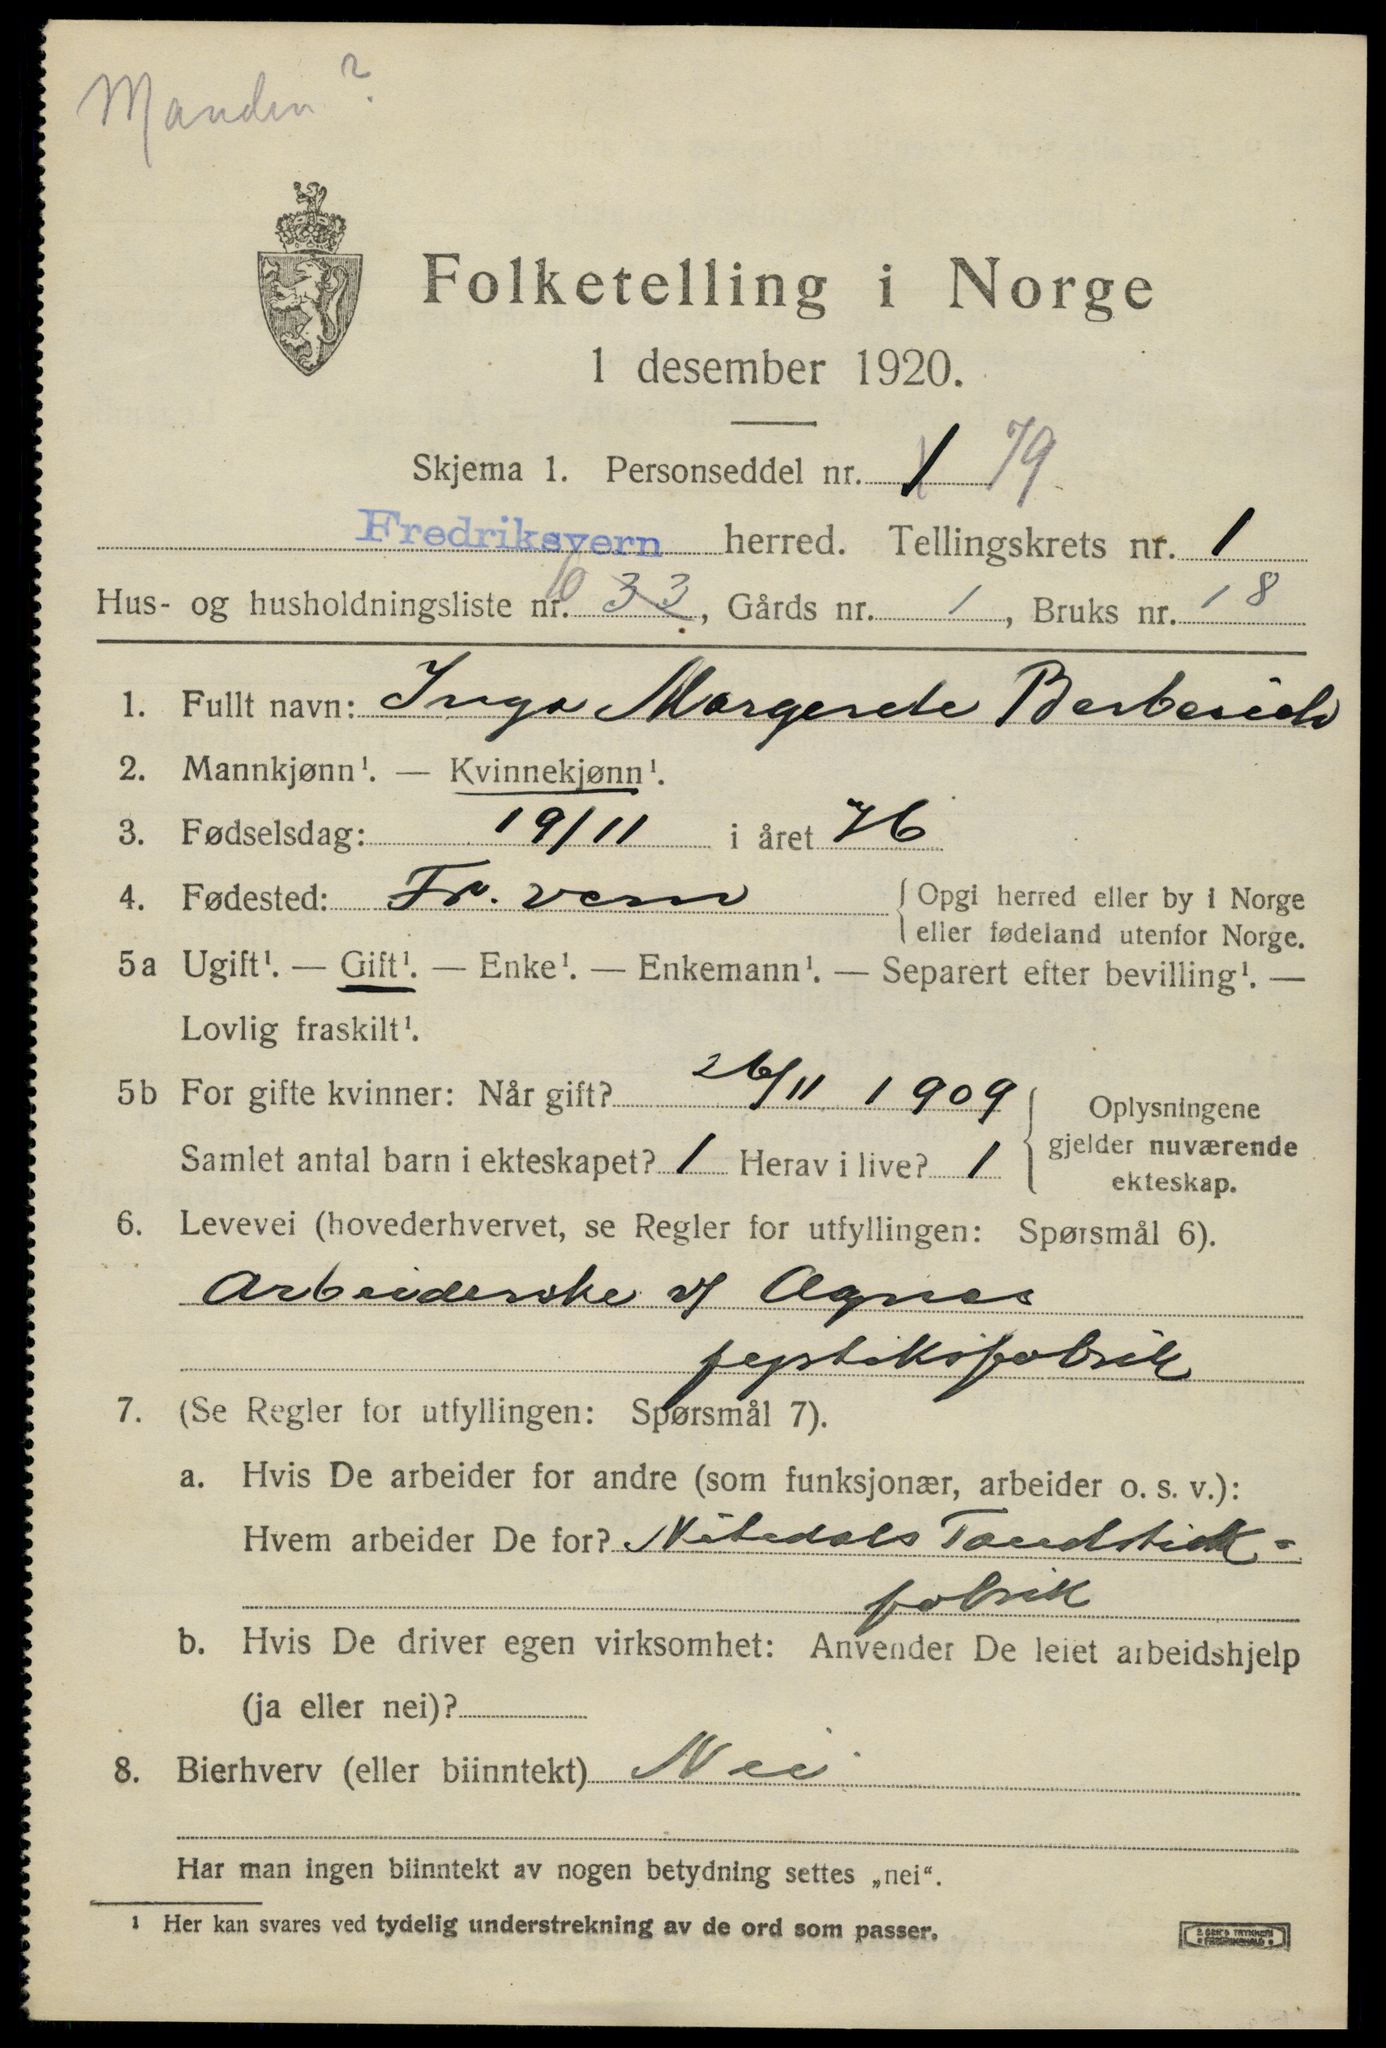 Manden?
Folketelling i Norge
1 desember 1920.
Skjema 1. Personseddel nr. 1 79
Fredriksvern herred. Tellingskrets nr. 1
Hus- og husholdningsliste nr. 33, Gårds nr. 1, Bruks nr. 18
1. Fullt navn: Inga Margrete
2. Mannkjønn¹. — Kvinnekjønn¹.
3. Fødselsdag: 19/11 i året 76
4. Fødested: Fr. vern { Opgi herred eller by i Norge
eller fødeland utenfor Norge.
5a Ugift¹. — Gift¹. — Enke¹. — Enkemann¹. — Separert efter bevilling¹. —
Lovlig fraskilt¹.
5b For gifte kvinner: Når gift? 26/11 1909
Samlet antal barn i ekteskapet? 1 Herav i live? 1
{ Oplysningene
gjelder nuværende
ekteskap.
6. Levevei (hovederhvervet, se Regler for utfyllingen: Spørsmål 6).
Arbeiderske v/ Agnes
fyrstiksfabrik
7. (Se Regler for utfyllingen: Spørsmål 7).
a. Hvis De arbeider for andre (som funksjonær, arbeider o. s. v.):
Hvem arbeider De for? Nitedals Tændstick-
fabrik
b. Hvis De driver egen virksomhet: Anvender De leiet arbeidshjelp
(ja eller nei)?
8. Bierhverv (eller biinntekt) Nei
Har man ingen biinntekt av nogen betydning settes „nei“.
¹ Her kan svares ved tydelig understrekning av de ord som passer.